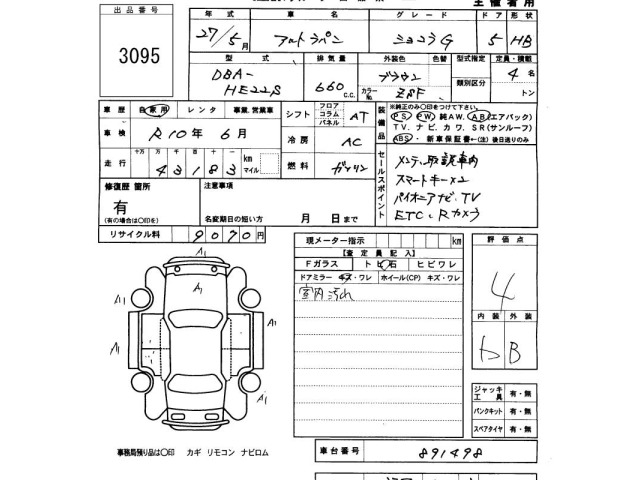 主催者用
出品番号
3095
年式 車名 グレード ドア 形状
27/5月 アルトラパン ショコラG 5 HB
型式 排気量 外装色 色替 型式指定 定員・積載
DBA-HE22S 660 C.C. ブラウン カラーNo. Z8F 類別区分 4名 トン
車歴 自家用 レンタ 事業、営業車
車検 R10年 6月
走行 十万 万 千 百 十 一 km マイル
43183
シフト フロア コラム パネル AT
冷房 AC
燃料 ガソリン
装備品
※純正のみ〇印をつけて下さい。
PS PW 純AW. AB(エアバック)
TV. ナビ. カワ. SR(サンルーフ)
ABS・新車保証書←(注)後日送りのみ
セールスポイント
メンテ、取説車内
スマートキーx2
パイオニアナビ、TV
ETC、Rカメラ
修復歴 箇所
有
(有の場合は〇印を)
注意事項
名変期日の短い方 月 日まで
リサイクル料 9070円
現メーター指示 km
【査定員記入】
Fガラス トビ石 ヒビワレ
ドアミラー キズ・ワレ ホイール(CP) キズ・ワレ
室内汚れ
評価点
4
内装 外装
B
A1
A1
A1 A1
A1
A1
ジャッキ工具 有・無
パンクキット 有・無
スペアタイヤ 有・無
事務局預り品は〇印 カギ リモコン ナビロム
車台番号 891498